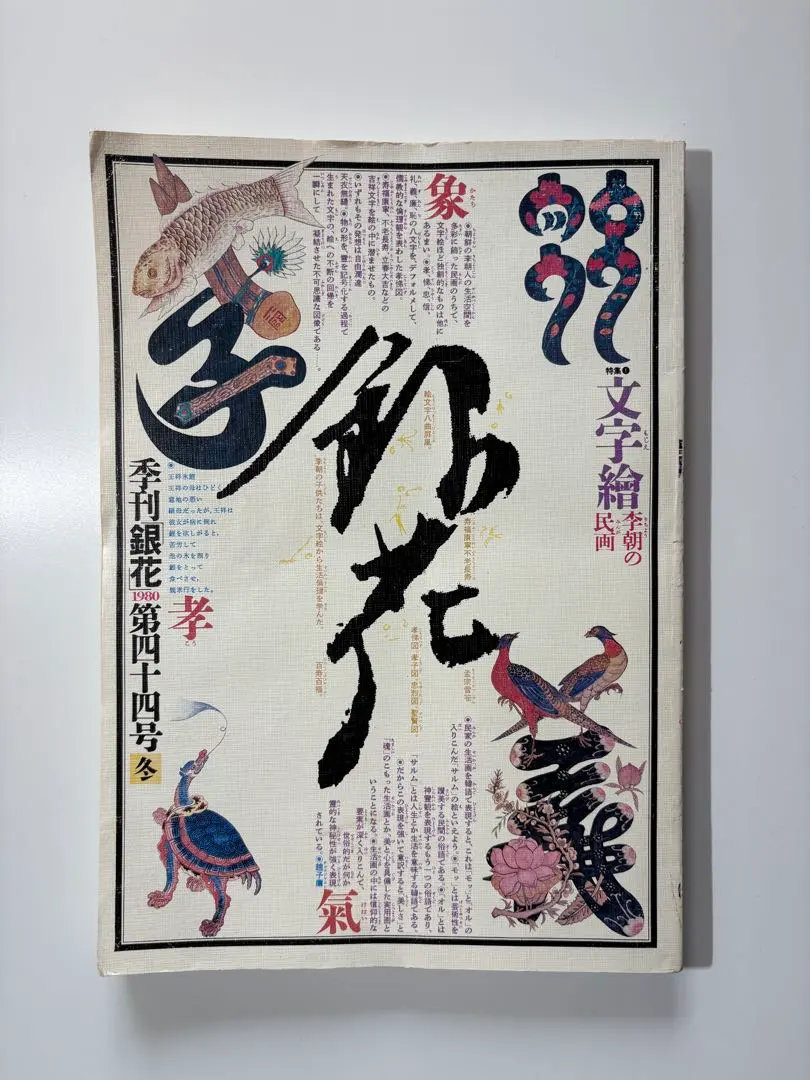 特集❶
文字繪
もじえ
李朝の
りちょう
民画
みんが
象
かたち
●朝鮮の李朝人の生活空間を
多彩に飾った民画のうちで、
文字絵ほど独創的なものは他に
あるまい。●孝、悌、忠、信、
礼、義、廉、恥の八文字を、デフォルメして、
儒教的な倫理観を表わした孝悌図。
●寿福康寧、不老長寿、立春大吉などの
吉祥文字を絵の中に潜ませたもの。
●いずれもその発想は自由濶達
天衣無縫。●物の形を、霊を記号化する過程で
生まれた文字の、絵への不断の回帰を
一瞬にして 凝結させた不可思議な図像である……。
銀花
絵文字八曲屏風。
寿福康寧不老長寿
孟宗雪筍
孝悌図 孝子図 忠烈図 聖賢図。
李朝の子供たちは、文字絵から生活倫理を学んだ。
百寿百福。
●
王祥氷鯉
王祥の母はひどく
意地の悪い
継母だったが、王祥は
彼女が病に倒れ
鯉を欲しがると、
苦労して
池の氷を割り
鯉をとって
食べさせ、
親孝行をした。
孝
こう
季刊「銀花」
1980
第四十四号
冬
●民家の生活画を韓語で表現すると、これは、「モッ」と「オル」の
入りこんだ「サルム」の絵といえよう。●「モッ」とは芸術性を
讃美する民間の俗語である。●「オル」とは
神霊観を表現するもう一つの俗語であり、
「サルム」とは人生とか生活を意味する韓語である。
●だからこの表現を強いて意訳すると「美しさ」と
「魂」のこもった生活画とか、美と心を具備した実用画と
いうことになる。●生活画の中には信仰的な
要素が深く入りこんで、
世俗的だが何か
霊的な神秘性が強く表現
されている。●趙子庸
氣
けはい